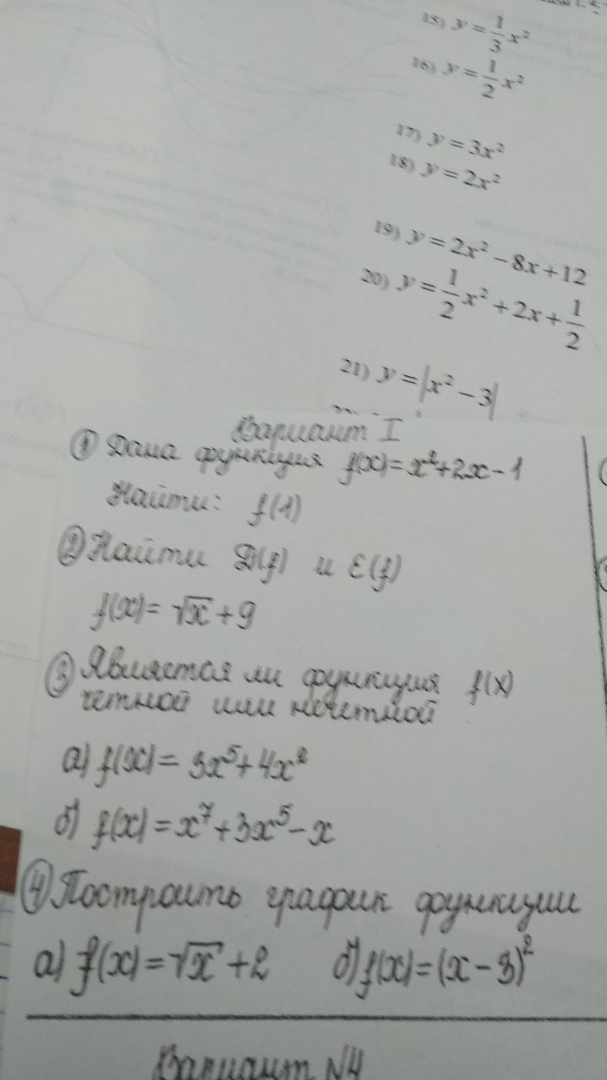 15) y = 1/3 x²
16) y = 1/2 x²
17) y = 3x²
18) y = 2x²
19) y = 2x² − 8x + 12
20) y = 1/2 x² + 2x + 1/2
21) y = |x² − 3|
Вариант I
① Дана функция f(x) = x² + 2x − 1
Найти: f(1)
② Найти D(f) и E(f)
f(x) = √x + 9
③ Является ли функция f(x)
четной или нечетной
а) f(x) = 3x⁵ + 4x²
б) f(x) = x⁷ + 3x⁵ − x
④ Построить график функции
а) f(x) = √x + 2 б) f(x) = (x − 3)²
Вариант №4